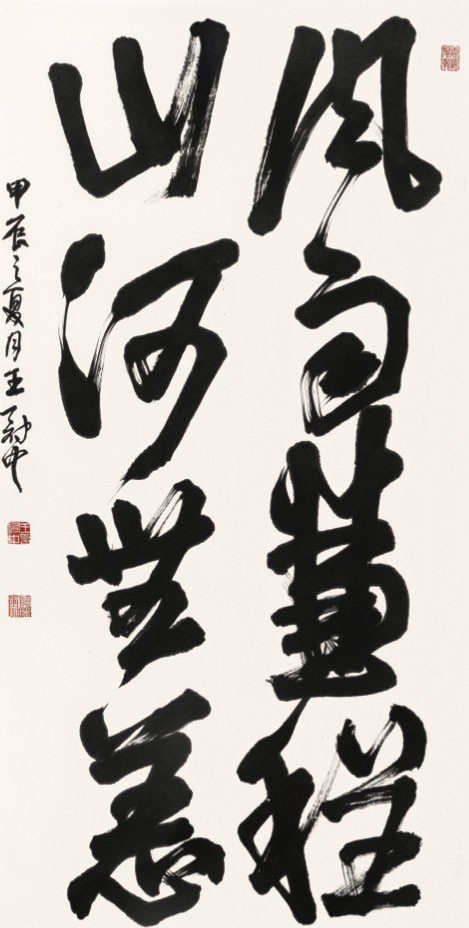 風雨兼程
山河無恙
甲辰之夏月王